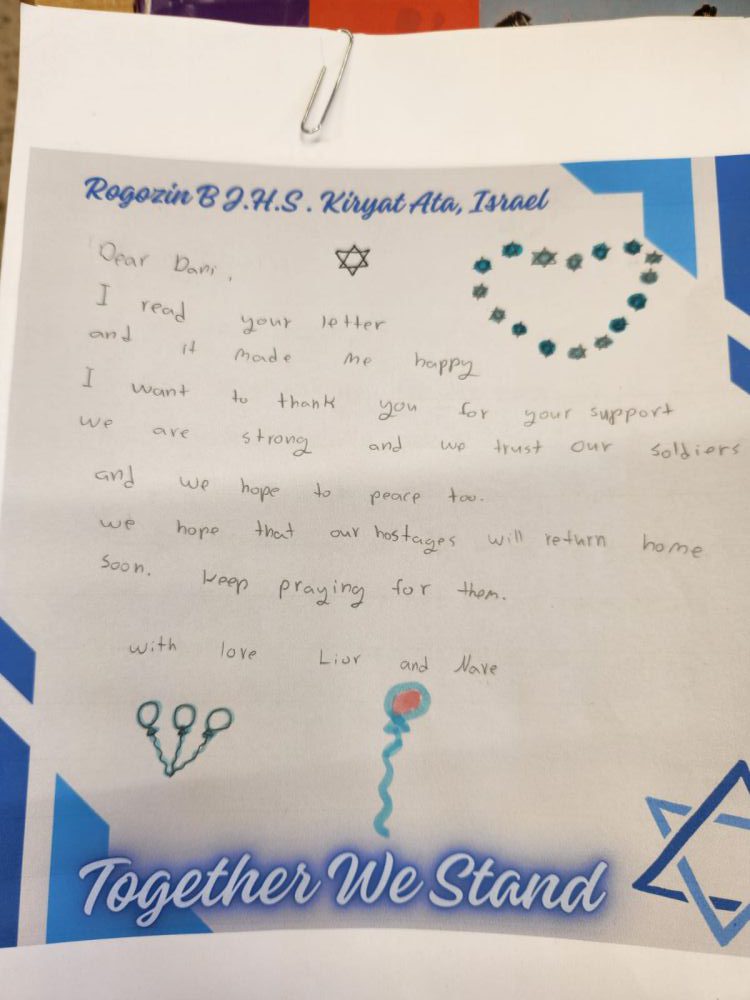 Rogozin B J.H.S. Kiryat Ata, Israel
Dear Dani,
I read your letter
and it made me happy
I want to thank you for your support
we are strong and we trust our soldiers
and we hope to peace too.
we hope that our hostages will return home
soon. keep praying for them.
with love Lior and Nave
Together We Stand